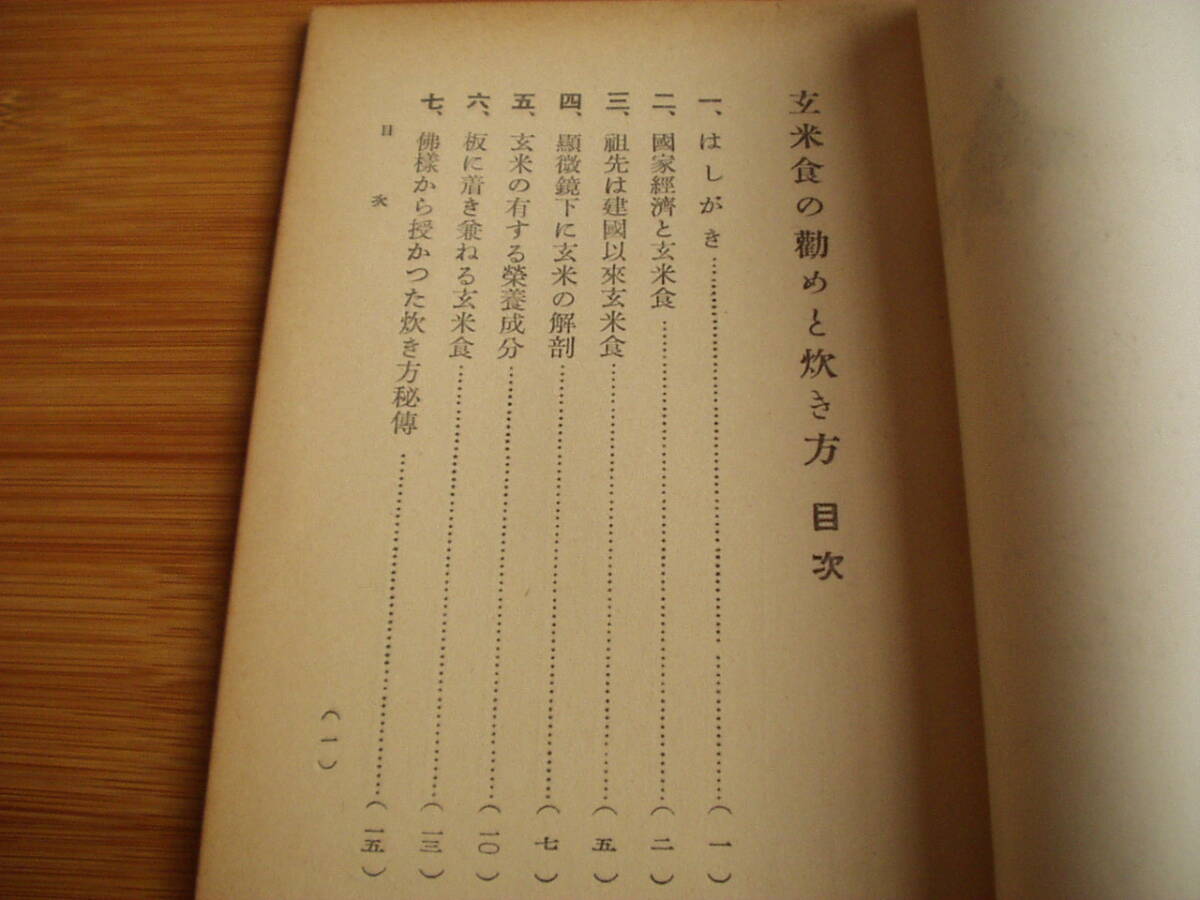 玄米食の勸めと炊き方 目次
一、はしがき……………………（一）
二、國家經濟と玄米食……………………（二）
三、祖先は建國以來玄米食……………………（五）
四、顯微鏡下に玄米の解剖……………………（七）
五、玄米の有する榮養成分……………………（一〇）
六、板に着き兼ねる玄米食……………………（一三）
七、佛樣から授かつた炊き方秘傳……………………（一五）
目次
（一）